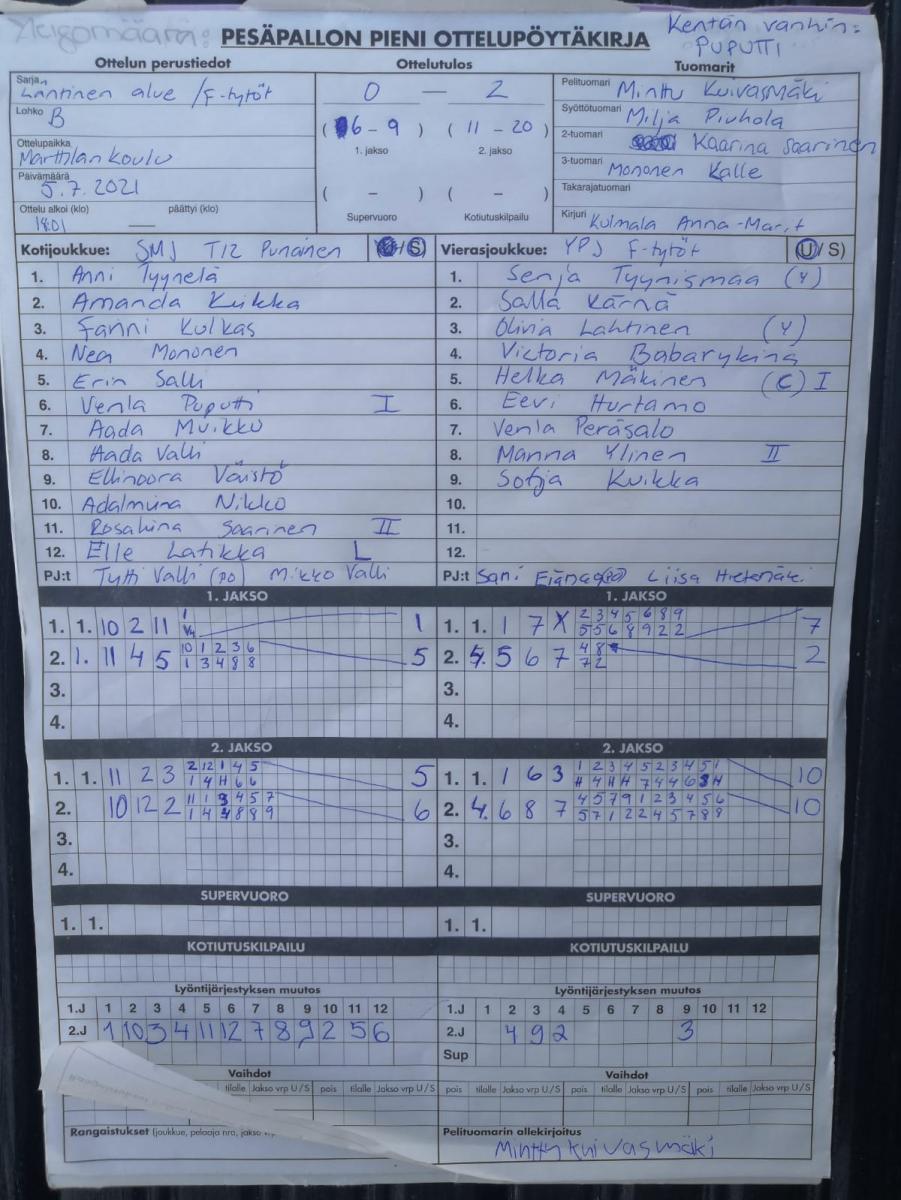 Yleisömäärä: PESÄPALLON PIENI OTTELUPÖYTÄKIRJA Kentän vanhin:
PUPUTTI
Ottelun perustiedot Ottelutulos Tuomarit
Sarja Läntinen alue / F-tytöt
Lohko B
Ottelupaikka Marttilan koulu
Päivämäärä 5.7.2021
Ottelu alkoi (klo) päättyi (klo)
18:01 —
0 — 2
(6 - 9) (11 - 20)
1. jakso 2. jakso
( - ) ( - )
Supervuoro Kotiutuskilpailu
Pelituomari Minttu Kuivasmäki
Syöttötuomari Milja Piuhola
2-tuomari Kaarina Saarinen
3-tuomari Mononen Kalle
Takarajatuomari
Kirjuri Kulmala Anna-Marit
Kotijoukkue: SMJ T12 Punainen / S)
1. Anni Tyynelä
2. Amanda Kuikka
3. Fanni Kulkas
4. Nea Mononen
5. Erin Salli
6. Venla Puputti I
7. Aada Muikku
8. Aada Valli
9. Ellinoora Väistö
10. Adalmiina Nikko
11. Rosaliina Saarinen II
12. Elle Latikka L
PJ:t Tytti Valli (po) Mikko Valli
Vierasjoukkue: YPJ F-tytöt (U / S)
1. Senja Tyynismaa (Y)
2. Salla Kärnä
3. Olivia Lahtinen (Y)
4. Victoria Babarykina
5. Helka Mäkinen (C) I
6. Eevi Hurtamo
7. Venla Peräsalo
8. Manna Ylinen II
9. Sofja Kuikka
10.
11.
12.
PJ:t Liisa
1. JAKSO
1. 1. 10 2 11 1
1
2. 1. 11 4 5 10 1 2 3 6 5
1 3 4 8 8
3.
4.
1. JAKSO
1. 1. 1 7 X 2 3 4 5 6 8 9 7
5 5 6 8 9 2 2
2. 5 6 7 4 8 2
7 2
3.
4.
2. JAKSO
1. 1. 11 2 3 2 12 1 4 5 5
1 4 H 6 6
2. 10 12 2 11 1 3 4 5 7 6
1 4 4 8 8 9
3.
4.
2. JAKSO
1. 1. 1 6 3 1 2 3 4 5 2 3 4 5 1 10
H 4 H H 7 4 4 6 8 H
2. 4. 6 8 7 4 5 7 9 1 2 3 4 5 6 10
5 7 1 2 2 4 5 7 8 8
3.
4.
SUPERVUORO SUPERVUORO
1. 1. 1. 1.
KOTIUTUSKILPAILU KOTIUTUSKILPAILU
Lyöntijärjestyksen muutos
1.J 1 2 3 4 5 6 7 8 9 10 11 12
2.J 1 10 3 4 11 12 7 8 9 2 5 6
Lyöntijärjestyksen muutos
1.J 1 2 3 4 5 6 7 8 9 10 11 12
2.J 4 9 2 3
Sup
Vaihdot
tilalle Jakso vrp U/S pois tilalle Jakso vrp U/S
Vaihdot
pois tilalle Jakso vrp U/S pois tilalle Jakso vrp U/S pois tilalle Jakso vrp U/S
Rangaistukset (joukkue, pelaaja nro, jakso
Pelituomarin allekirjoitus
Minttu Kuivasmäki